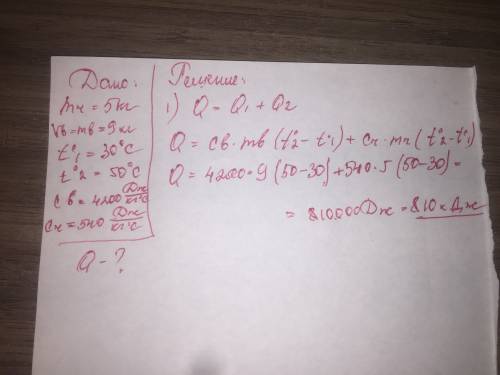 Дано:
mч = 5кг
Vв = mв = 9кг
t°1 = 30°C
t°2 = 50°C
cв = 4200 Дж/кг°C
cч = 540 Дж/кг°C
Q - ?
Решение:
1) Q = Q1 + Q2
Q = cв · mв (t°2 - t°1) + cч · mч (t°2 - t°1)
Q = 4200 · 9 (50 - 30) + 540 · 5 (50 - 30) =
= 810000 Дж = 810 кДж